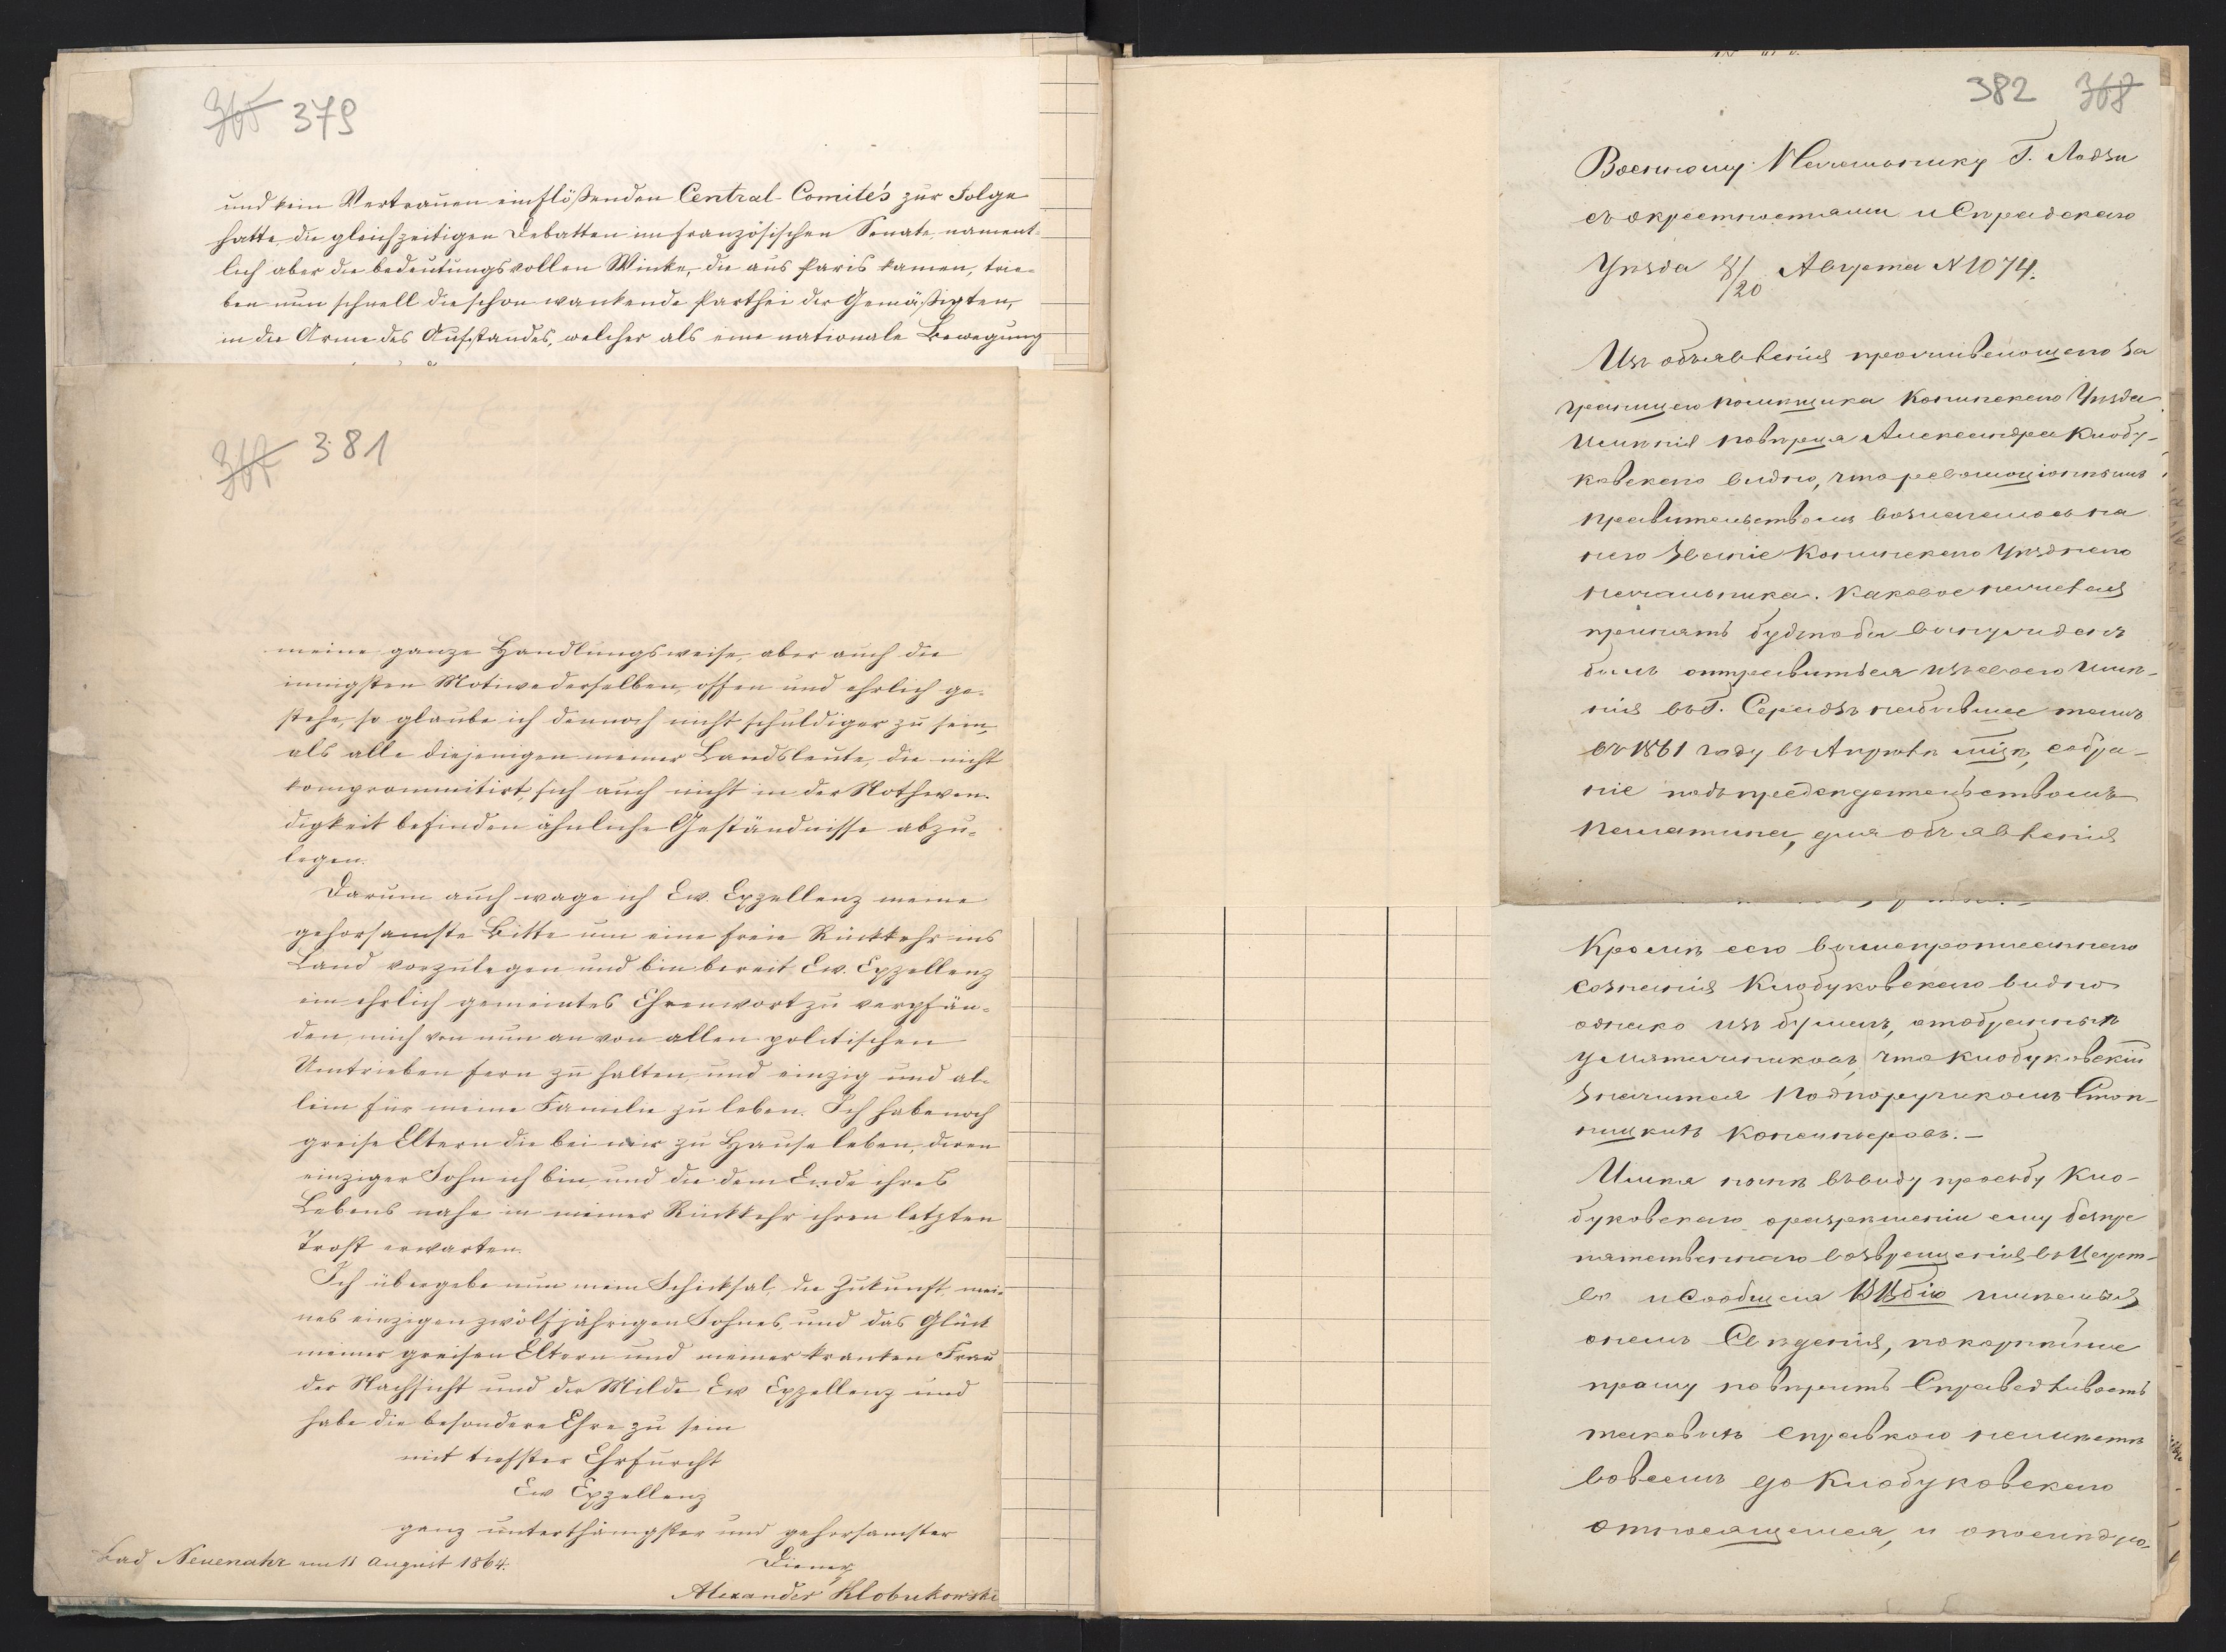 365 379
und kein Vertrauen einflößenden Central-Comité's zur Folge
hatte die gleichzeitigen Debatten im französischen Senate, nament-
lich aber die bedeutungsvollen Winke, die aus Paris kamen, trie-
ben nun schnell die schon wankende Parthei der Gemäßigten,
in die Arme des Aufstandes, welcher als eine nationale Bewegung
367 381
meine ganze Handlungsweise, aber auch die
innigsten Motive derselben, offen und ehrlich ge-
stehe, so glaube ich dennoch nicht schuldiger zu sein,
als alle diejenigen meiner Landsleute, die nicht
komprommitirt, sich auch nicht in der Nothwen-
digkeit befinden ähnliche Geständnisse abzu-
legen.
Darum auch wage ich Ew. Exzellenz meine
gehorsamste Bitte um eine freie Rückkehr ins
Land vorzulegen und bin bereit Ew. Exzellenz
ein ehrlich gemeintes Ehrenwort zu verpfän-
den, mich von nun an von allen politischen
Umtrieben fern zu halten, und einzig und al-
lein für meine Familie zu leben. Ich habe noch
greise Eltern die bei mir zu Hause leben, deren
einziger Sohn ich bin, und die dem Ende ihres
Lebens nahe in meiner Rückkehr ihren letzten
Trost erwarten.
Ich übergebe nun mein Schicksal, die Zukunft mei-
nes einzigen zwölfjährigen Sohnes, und das Glück
meiner greisen Eltern und meiner kranken Frau
der Nachsicht und der Milde Ew Exzellenz und
habe die besondere Ehre zu sein
mit tiefster Ehrfurcht
Ew Exzellenz
ganz unterthänigster und gehorsamster
Diener
Bad Neuenahr am 11 August 1864.
Alexander Kłobukowski
382 368
Военному Начальнику Г. Лодзи
съ окрестностями и Сѣрадскаго
Уѣзда 8/20 Августа N 1074.
Изъ объявленія проживающаго за
границею помѣщика Конинскаго Уѣзда
Имѣнія Александра Клобу-
ковскаго видно, что революціоннымъ
правительствомъ возлагалось на
него званіе Конинскаго Уѣзднаго
начальника. Каковое не желая
принять будтобы вынужденъ
былъ отправиться изъ своего Имѣ-
нія въ Г. Серадзь на бывшее тамъ
въ 1861 году въ Апрѣлѣ мцѣ, собра-
ніе подъ предсѣдательствомъ
для объявленія
Кромѣ сего вышепрописаннаго
сознанія Клобуковскаго видно
однако изъ бумагъ, отобранныхъ
у мятежниковъ, что Клобуковскій
значится Подпоручикомъ
Имѣя нынѣ въ виду просьбу Кло-
буковскаго о разрѣшеніи ему безпре-
пятственнаго возвращенія въ Царст-
во и сообщая ВВбію имѣемыя
о немъ Свѣденія, покорнѣйше
прошу повѣрить Справедливость
таковыхъ справкою не имѣетъ
во всемъ до Клобуковскаго
относящемся, и о послѣдую-